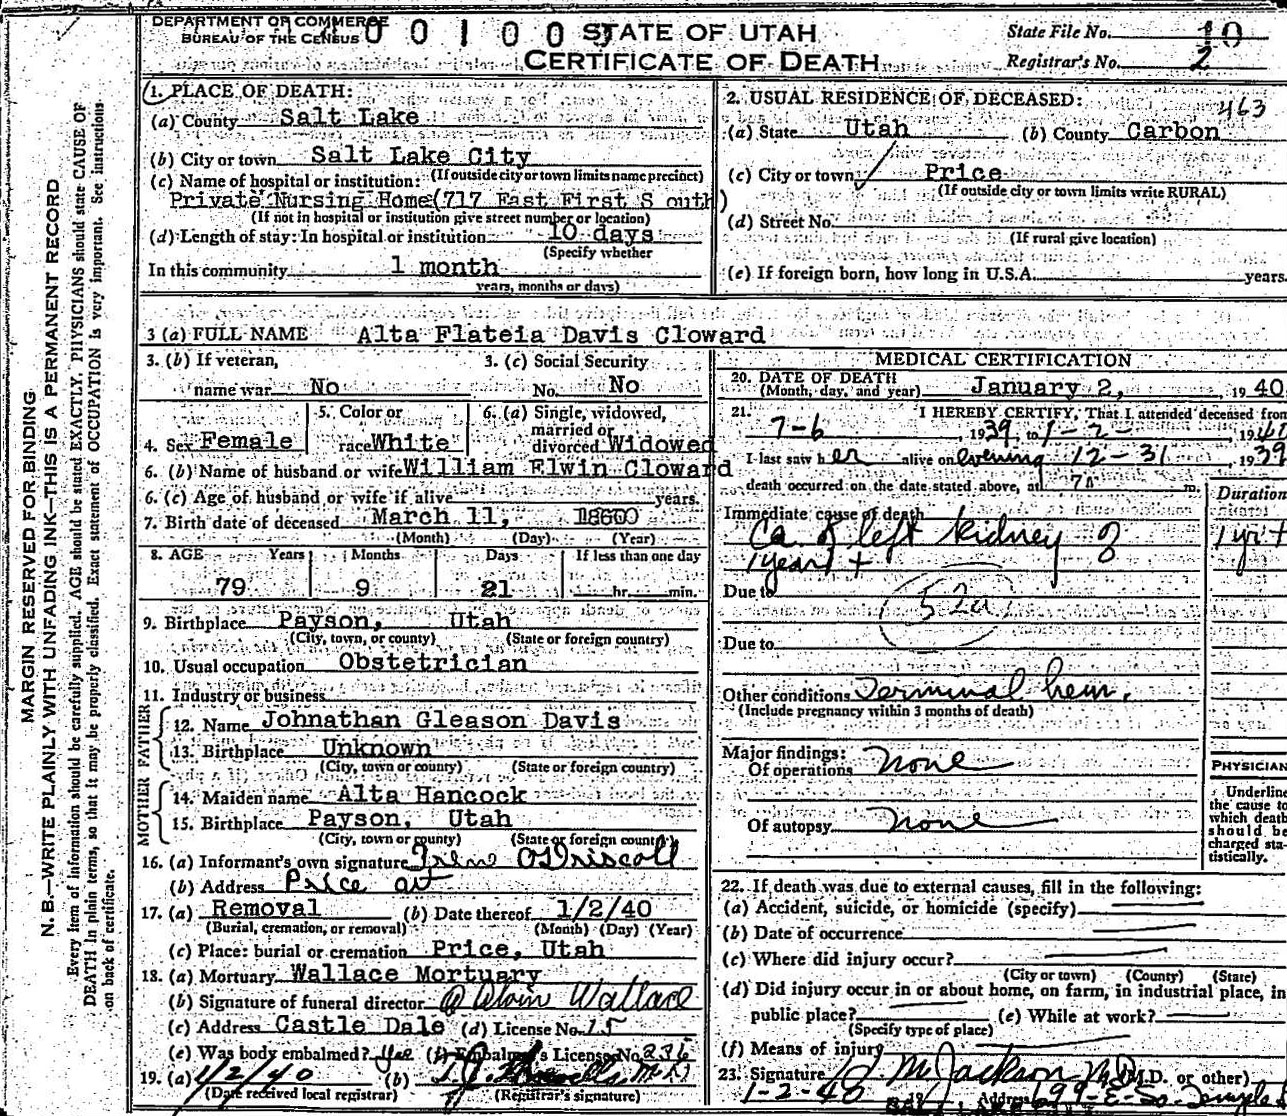 DEPARTMENT OF COMMERCE
BUREAU OF THE CENSUS
STATE OF UTAH
CERTIFICATE OF DEATH
State File No. 10
Registrar's No. 2
MARGIN RESERVED FOR BINDING
N. B.—WRITE PLAINLY WITH UNFADING INK—THIS IS A PERMANENT RECORD
Every item of information should be carefully supplied. AGE should be stated EXACTLY. PHYSICIANS should state CAUSE OF
DEATH in plain terms, so that it may be properly classified. Exact statement of OCCUPATION is very important. See instructions
on back of certificate.
1. PLACE OF DEATH:
(a) County Salt Lake
(b) City or town Salt Lake City
(If outside city or town limits name precinct)
(c) Name of hospital or institution:
Private Nursing Home (717 East First South)
(If not in hospital or institution give street number or location)
(d) Length of stay: In hospital or institution 10 days
(Specify whether
In this community 1 month
years, months or days)
2. USUAL RESIDENCE OF DECEASED: 463
(a) State Utah (b) County Carbon
(c) City or town Price
(If outside city or town limits write RURAL)
(d) Street No.
(If rural give location)
(e) If foreign born, how long in U.S.A. years.
3 (a) FULL NAME Alta Flateia Davis Cloward
3. (b) If veteran, name war No
3. (c) Social Security No. No
4. Sex Female
5. Color or race White
6. (a) Single, widowed, married or divorced Widowed
6. (b) Name of husband or wife William Elwin Cloward
6. (c) Age of husband or wife if alive years.
7. Birth date of deceased March 11, 1860
(Month) (Day) (Year)
8. AGE Years Months Days If less than one day
79 9 21 hr. min.
9. Birthplace Payson, Utah
(City, town, or county) (State or foreign country)
10. Usual occupation Obstetrician
11. Industry or business
FATHER
12. Name Johnathan Gleason Davis
13. Birthplace Unknown
(City, town or county) (State or foreign country)
MOTHER
14. Maiden name Alta Hancock
15. Birthplace Payson, Utah
(City, town or county) (State or foreign country)
16. (a) Informant's own signature Irene O'Driscoll
(b) Address Price Ut
17. (a) Removal (b) Date thereof 1/2/40
(Burial, cremation, or removal) (Month) (Day) (Year)
(c) Place: burial or cremation Price, Utah
18. (a) Mortuary Wallace Mortuary
(b) Signature of funeral director Alvin Wallace
(c) Address Castle Dale (d) License No. 15
(e) Was body embalmed? Yes (f) Embalmer's License No. 236
19. (a) 1/2/40 (b) M.D.
(Date received local registrar) (Registrar's signature)
MEDICAL CERTIFICATION
20. DATE OF DEATH January 2, 1940
(Month, day, and year)
21. I HEREBY CERTIFY, That I attended deceased from
7-6, 1939, to 1-2-, 1940
I last saw her alive on evening 12-31, 1939
death occurred on the date stated above, at m.
Duration
Immediate cause of death
Ca. of left kidney of 1 yr +
1 year +
Due to 52a
Due to
Other conditions Terminal hem.
(Include pregnancy within 3 months of death)
Major findings:
Of operations none
Of autopsy none
PHYSICIAN
Underline
the cause to
which death
should be
charged sta-
tistically.
22. If death was due to external causes, fill in the following:
(a) Accident, suicide, or homicide (specify)
(b) Date of occurrence
(c) Where did injury occur?
(City or town) (County) (State)
(d) Did injury occur in or about home, on farm, in industrial place, in
public place? (e) While at work?
(Specify type of place)
(f) Means of injury
23. Signature M Jackson M.D. (M.D. or other)
1-2-40 Address 699-E-So. Temple